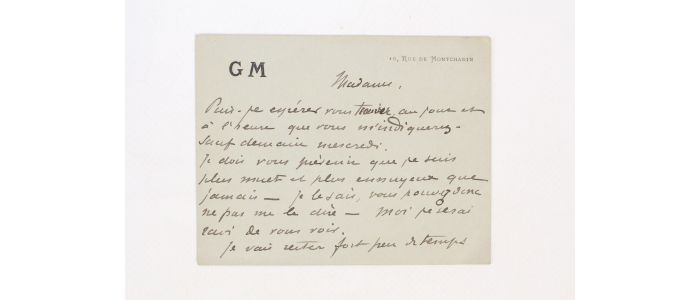 GM
10, Rue de Montchanin
Madame,
Puis-je espérer vous trouver, au jour et
à l'heure que vous m'indiquerez -
sauf demain mercredi.
Je dois vous prévenir que je suis
plus muet et plus ennuyeux que
jamais — je le sais, vous pouvez donc
ne pas me le dire — Moi je serai
ravi de vous voir.
Je vais rester fort peu de temps